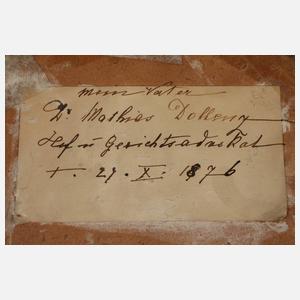 mein Vater
Dr Mathias Dolleny
Hof u Gerichtsadvokat
+. 29. X. 1876